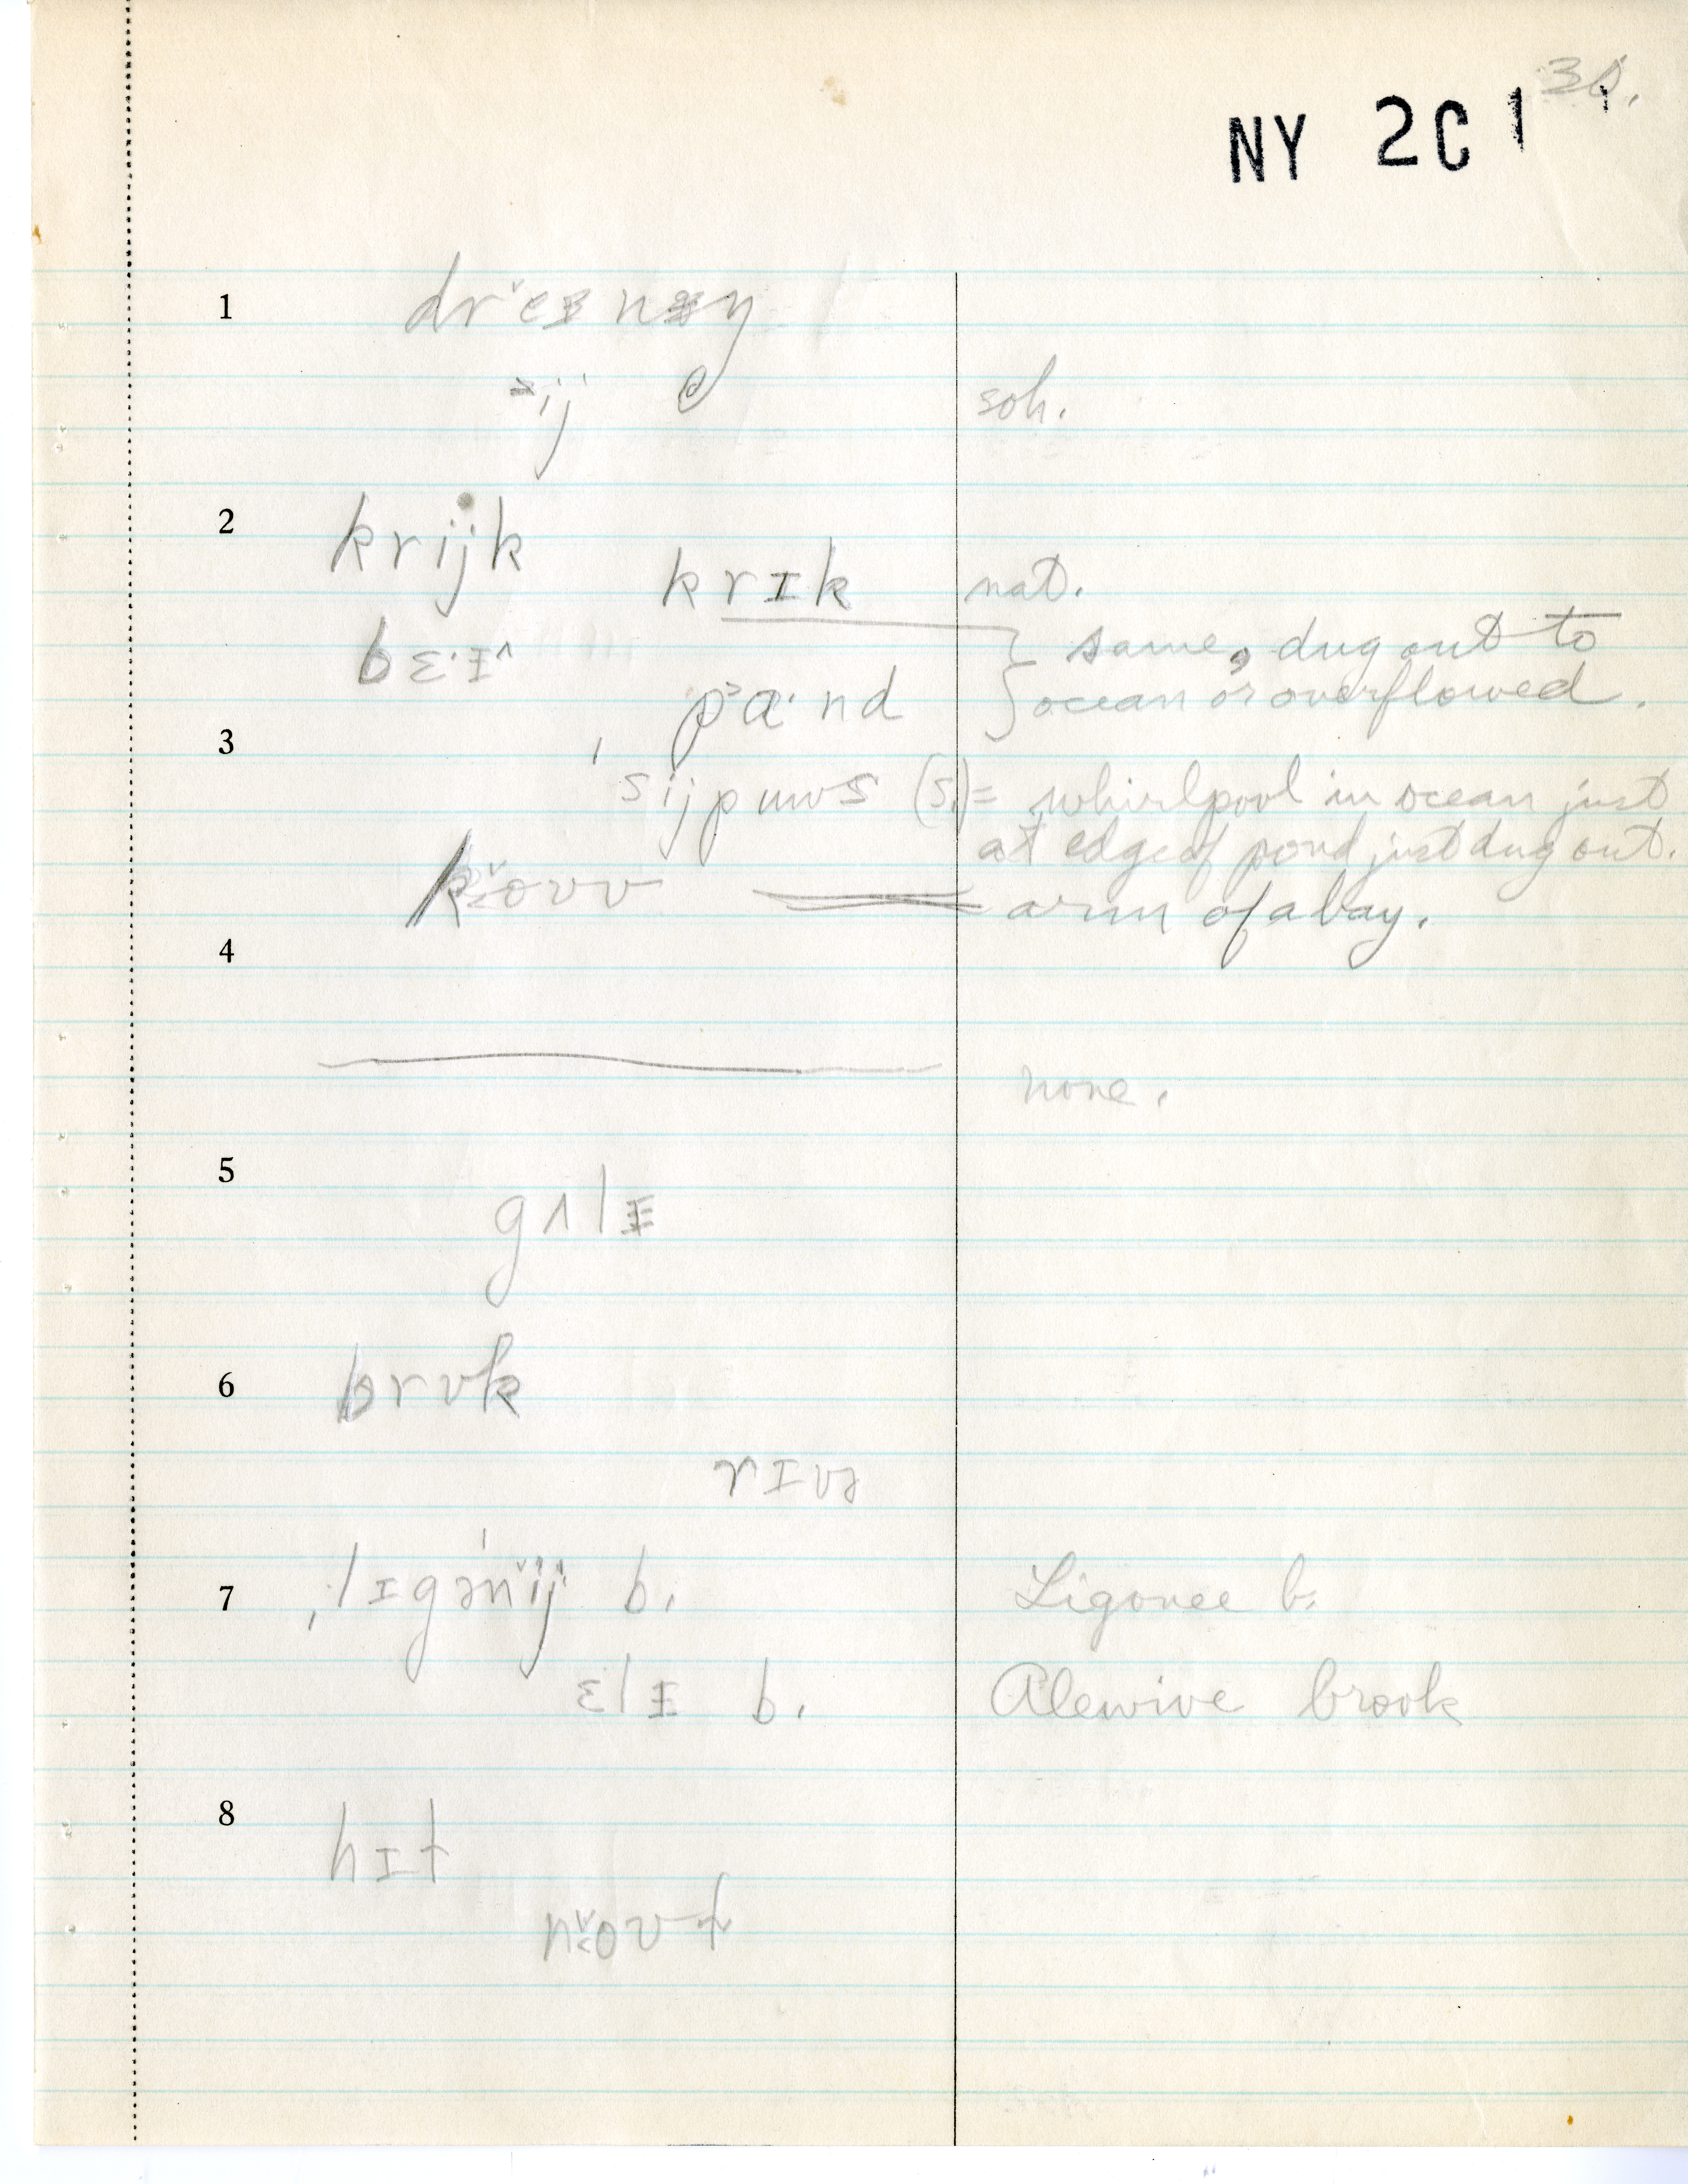 NY 2C 1
1 dr˅eɪnɪŋ
ij
soh.
2 krijk
krɪk nat.
bɛ·ɪ^
same, dug out to
pɑ·nd ocean or overflowed.
3
ˌsijpuws (s.) = whirlpool in ocean just
at edge of pond just dug out.
k˅oʊv = arm of a bay.
4
none.
5
gʌlɪ
6 brʊk
rɪvə
7 ˌlɪgənˈij b. Ligonee b.
ɛlɪ b. Alewive brook
8
hɪt
n˅oʊt